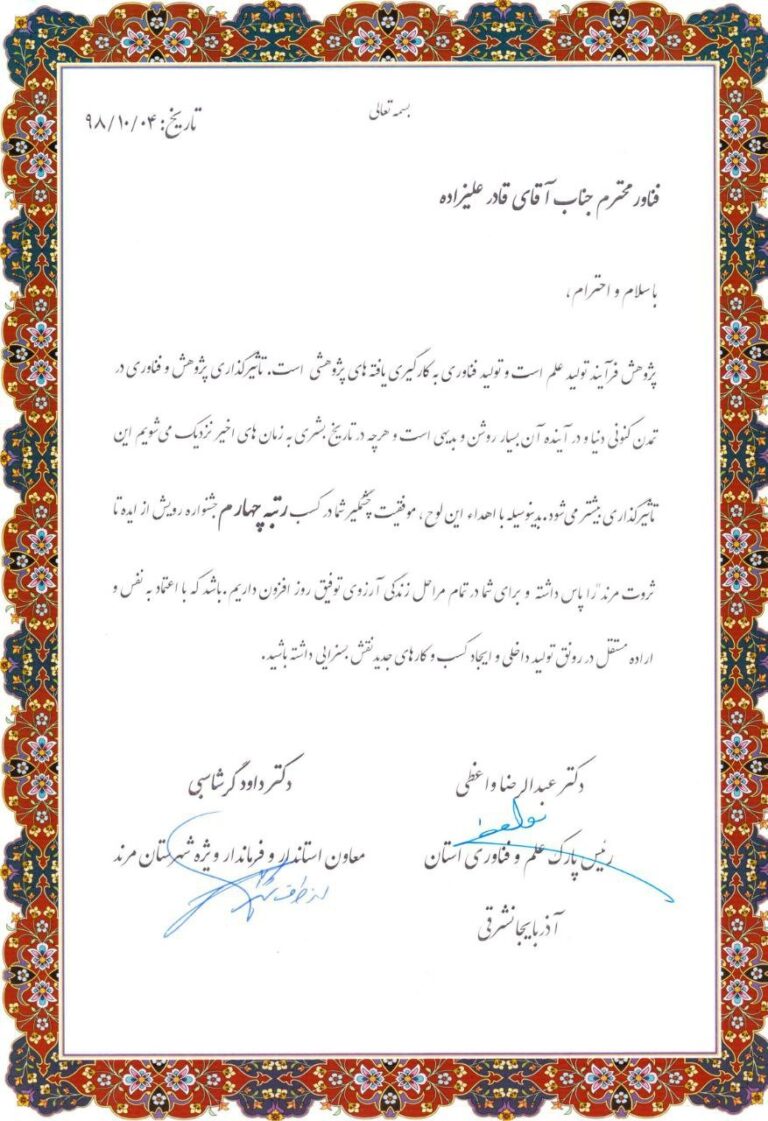 بسمه تعالی
تاریخ: ۹۸/۱۰/۰۴
فناور محترم جناب آقای قادر علیزاده
با سلام و احترام،
پژوهش فرآیند تولید علم است و تولید فناوری به کارگیری یافته های پژوهشی است. تأثیرگذاری پژوهش و فناوری در
تمدن کنونی دنیا و در آینده آن بسیار روشن و بدیهی است و هرچه در تاریخ بشری به زمان های اخیر نزدیک می‌شویم این
تأثیرگذاری بیشتر می‌شود. بدینوسیله با اهداء این لوح، موفقیت چشمگیر شما در کسب رتبه چهارم جشنواره رویش از ایده تا
ثروت مرند"را پاس داشته و برای شما در تمام مراحل زندگی آرزوی توفیق روز افزون داریم. باشد که با اعتماد به نفس و
اراده مستقل در رونق تولید داخلی و ایجاد کسب و کارهای جدید نقش بسزایی داشته باشید.
دکتر عبدالرضا واعظی
رئیس پارک علم و فناوری استان
آذربایجانشرقی
دکتر داود گرشاسبی
معاون استاندار و فرماندار ویژه شهرستان مرند